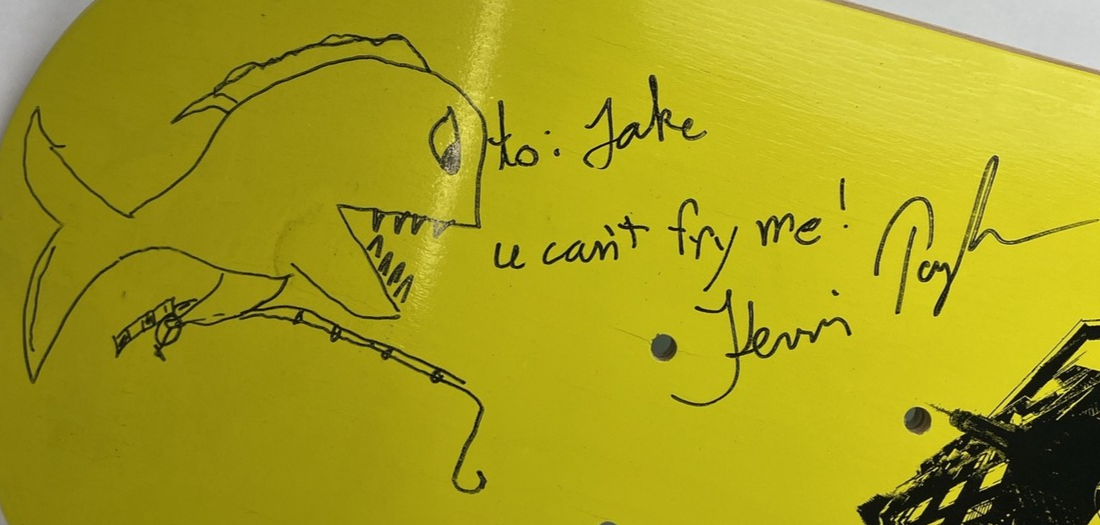 to: Jake
u can't fry me!
Kevin Taylor